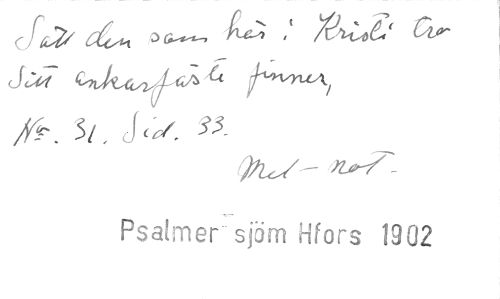 Säll den som här i Kristi tro
Sitt ankarfäste finner,
No. 31. Sid. 33.
Mel-not.
Psalmer sjöm Hfors 1902